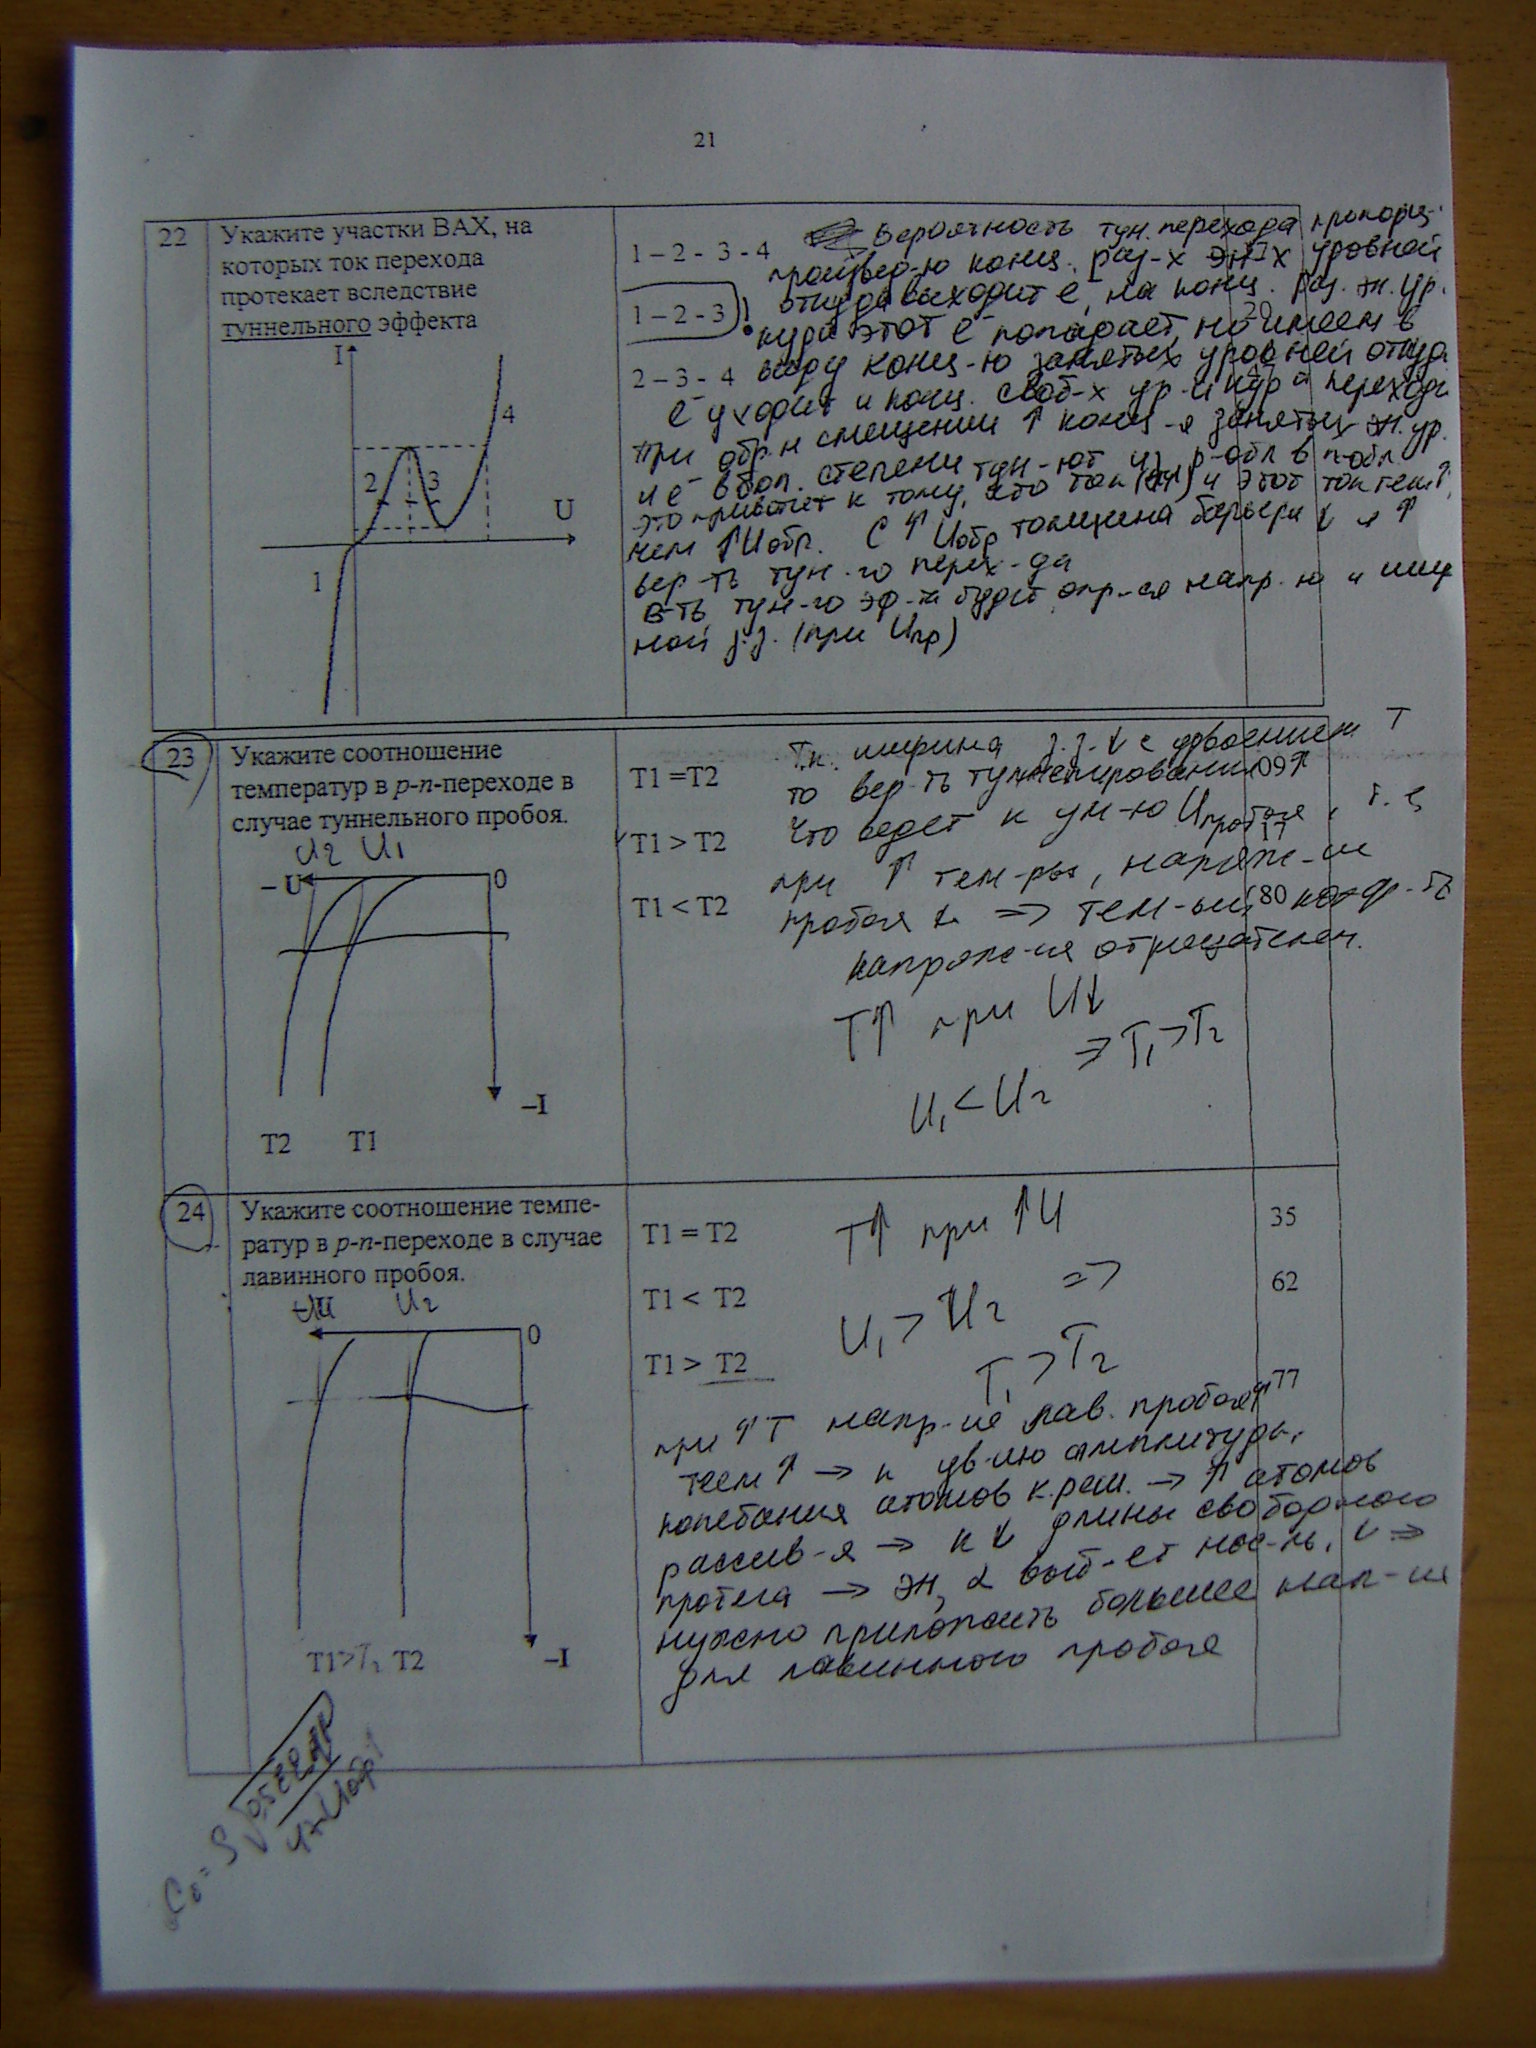 21
22
Укажите участки ВАХ, на
которых ток перехода
протекает вследствие
туннельного эффекта
I
2
3
4
U
1
1 – 2 - 3 - 4
1 – 2 - 3 !
2 – 3 - 4
20
17
Вероятность тун. перехода пропорц.
произвед-ю конц. раз-х эн-х уровней
откуда выходит e, на конц. раз. эн. ур.
куда этот e⁻ попадает, но имеем в
виду конц-ю занятых уровней откуда
e⁻ уходит и конц. своб-х ур-й куда переходит
При обр-м смещении ↑ конц-я занятых эн. ур.
и e⁻ в бол. степени тун-ют из p-обл в n-обл
это приводит к тому, что ток и этот ток тем ↑,
чем ↑Uобр. С ↑ Uобр толщина барьера ↓ и ↑
вер-ть тун-го перех-да
в-ть тун-го эф-та будет опр-ся напр-ю и шир
ной з.з. (при Uпр)
23
Укажите соотношение
температур в p-n-переходе в
случае туннельного пробоя.
U2 U1
– U
0
–I
T2 T1
T1 =T2
T1 > T2
T1 < T2
09
17
80
Т.к. ширина з.з. ↓ с T
то вер-ть туннелирования ↑
что ведет к ум-ю Uпробоя, т.е
при ↑ тем-ры, напряж-ие
пробоя ↓ => тем-ый коэф-т
напряж-ия отрицателен.
T↑ при U↓
U1 < U2 => T1 > T2
24
Укажите соотношение темпе-
ратур в p-n-переходе в случае
лавинного пробоя.
U2
0
–I
T1>T2 T2
T1 = T2
T1 < T2
T1 > T2
35
62
77
T↑ при ↑U
U1 > U2 =>
T1 > T2
при ↑T напр-ие лав. пробоя↑
тем ↑ → к ув-ию амплитуды
колебания атомов к.реш. → ↑ атомов
рассеив-я → к ↓ длины свободного
пробега → эн,
нужно приложить большее нап-ие
для лавинного пробоя